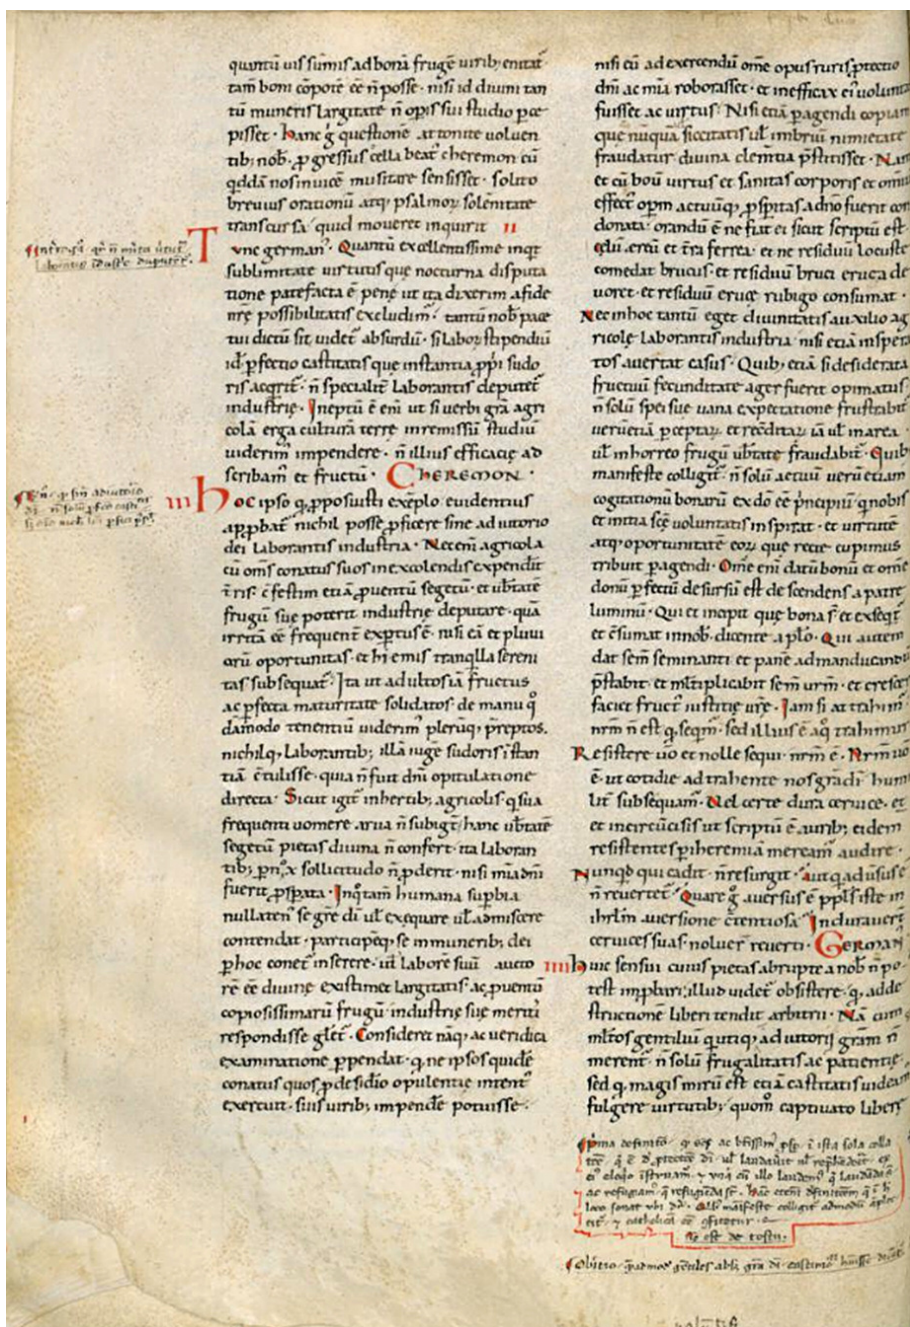 quantū uis sūmis ad bonā frugē uirib; enitat̄
tam boni cōpotē eē n̄ posse · nisi id diuini tan
tū muneris largitate n̄ opis sui studio p̄ce
pisset · Hanc ḡ questionē attonite voluen
tib; nob̄ · p̄gressus cella beat᾽ cheremon cū
qddā nos inuicē musitare sensisset · solito
brevius orationū atq; psalmoꝝ solēnitate
transcursa · quid moueret inquirit · II
Tvnc german᾽ · Quantū excellentissime inqt
sublimitate uirtutis que nocturna disputa
tione patefacta ē penę ut ita dixerim a fide
nr̄ę possibilitatis excludim᾽ · tantū nob̄ pace
tui dictū sit uidet᾽ absurdū · si labor̄ stipendiū
id ꝑfectio castitatis que instantia ꝓpi sudo
ris acqrit᾽ · n̄ specialit᾽ laborantis deputet᾽
industrię · Ineptū ē eni ut si verbi grā agri
colā erga culturā terrę in remissū studiū
uiderim᾽ impendere · n̄ illius efficacię ad
scribam᾽ et fructū · CHEREMON ·
III Hoc ipso q, ꝓposuisti exēplo euidentius
apꝓbat᾽ nichil posse ꝑficere sine adiutorio
dei laborantis industria · Nec eni agricola
cū om̄s conatus suos in excolendis expendit
t̄ris · c̄festim etiā ꝓuentū segetū · et ub̄tatē
frugū suę poterit industrię deputare · quā
irritā eē frequent᾽ exꝑtus ē · nisi eā et pluui
arū oportunitas · et hiemis tranqlla sereni
tas subsequat᾽ · Ita ut adultos iā fructus
ac ꝑfecta maturitate solidatos · de manu q̊
dāmodo tenentiū uiderim᾽ plerūq, p̄reptos ·
nichilq, laborantib; illā iugē sudoris īstan
tiā c̄tulisse · quia n̄ fuit dn̄i opitulatione
directa · Sicut igit᾽ inhertib; agricolis q sua
frequenti uomere arua n̄ subigt᾽ / hanc ub̄tatē
segetū pietas diuina n̄ confert · ita laboran
tib; ꝑnox sollicitudo n̄ ꝓderit · nisi mīa dn̄i
fuerit ꝓsꝑata · In qtam humana suꝑbia
nullaten᾽ se grē di᾽ ul̄ exequare ul̄ admiscere
contendat · participēq, se in munerib; dei
ꝑ hoc conet᾽ inserere · ul̄ laborē suū aucto
rē eē diuinę existimet largitatis · ac ꝓuentū
copiosissimarū frugū · industrię suę meriti᾽
respondisse glet᾽ · Consideret nāq, ac veridica
examinatione ꝑpendat · q, ne ipsos quidē
conatus quos ꝓ desidio opulentię intent᾽
exercuit · suis uirib; impendē potuisse ·
nisi eū ad exercendū om̄e opus ruris ꝓtectio
dn̄i ac mīa roborasset · et inefficax ei᾽ volunta
fuisset ac virtus · Nisi etiā ꝑagendi copiam
quę nūquā siccitatis ul̄ imbriū nimietate
fraudatur diuina clem̄tia p̄stitisset · Nam
et cū boū virtus et sanitas corporis et omiū
effect᾽ opm actuūq, ꝓspitas a dn̄o fuerit con
donata · orandū ē ne fiat ei sicut scriptū est
cęlum ereū et t̄ra ferrea · et ne residuū locuste
comedat brucus · et residuū bruci eruca de
uoret · et residuū erucę rubigo consumat ·
Nec in hoc tantū eget diuinitatis auxilio ag
ricolę laborantis industria · nisi etiā insꝑa
tos auertat casus · Quib; etiā si desiderata
fructuū fecunditate ager fuerit opimatus
n̄ solū spei suę uana expectatione frustrabit᾽
verū etiā ꝑceptaꝝ et recōditaꝝ iā ul̄ in area
ul̄ in horreo frugū ub̄tate fraudabit᾽ · Quib
manifeste colligit᾽ · n̄ solū actuū verū etiam
cogitationū bonarū ex dō eē p̄ncipiū · q nobis
et initia scē voluntatis inspirat · et virtutē
atq, oportunitatē eoꝝ que recte cupimus
tribuit ꝑagendi · Om̄e eni datū bonū et om̄e
donū ꝑfectū desursū est descendens a patre
luminū · Qui et incipit quę bona s̄t et exseqt᾽
et c̄sumat in nob̄ · dicente aplo · Qui autem
dat sem̄ seminanti et panē ad manducandū
p̄stabit · et ml̄tiplicabit sem̄ urm̄ · et cresce
faciet fruct᾽ iustitię ur̄e · Iam si attrahim᾽
nrm̄ n̄ est q, seqm᾽ · sed illius ē a q̊ trahimus
Resistere uō et nolle sequi · nrm̄ ē · Nrm̄ uō
ē · ut cotidie adtrahente nos grā di᾽ humi
lit᾽ subsequam᾽ · Vel certe dura ceruice · et
et incircūcisis ut scriptū ē aurib; eidem
resistentes ꝑ iheremiā mereamˉ audire ·
Nunqd qui cadit · n̄ resurgit · aut q aduersus ē
n̄ reuertet᾽ · Quare ḡ auersus ē ppl̄s iste in
ihrlm̄ auersione c̄tentiosa · Indurauer̄
ceruices suas · noluer̄ reuerti · GERMAN᾽
IIII Huic sensui cuius pietas abrupte a nob̄ n̄ po
test improbari · illud videt᾽ obsistere · q, adde
structionē liberi tendit arbitrii · Nā cum
ml̄tos gentiliū qui utiq, adiutorii grām n̄
merent᾽ · n̄ solū frugalitatis ac patientię
sed q, magis mirū est etiā castitatis uideam
fulgere virtutib; quom᾽ captiuato liberi